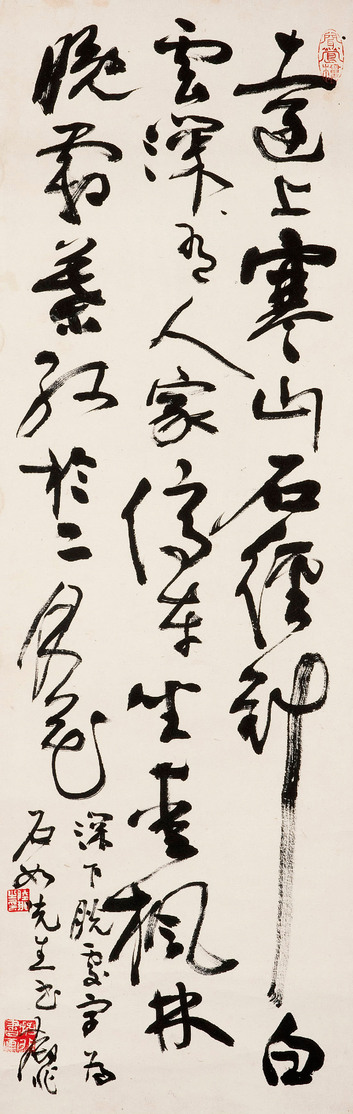 遠上寒山石徑斜白
雲深有人家停車坐愛楓林
晚霜葉紅於二月花
深下脫處字為
石如先生書